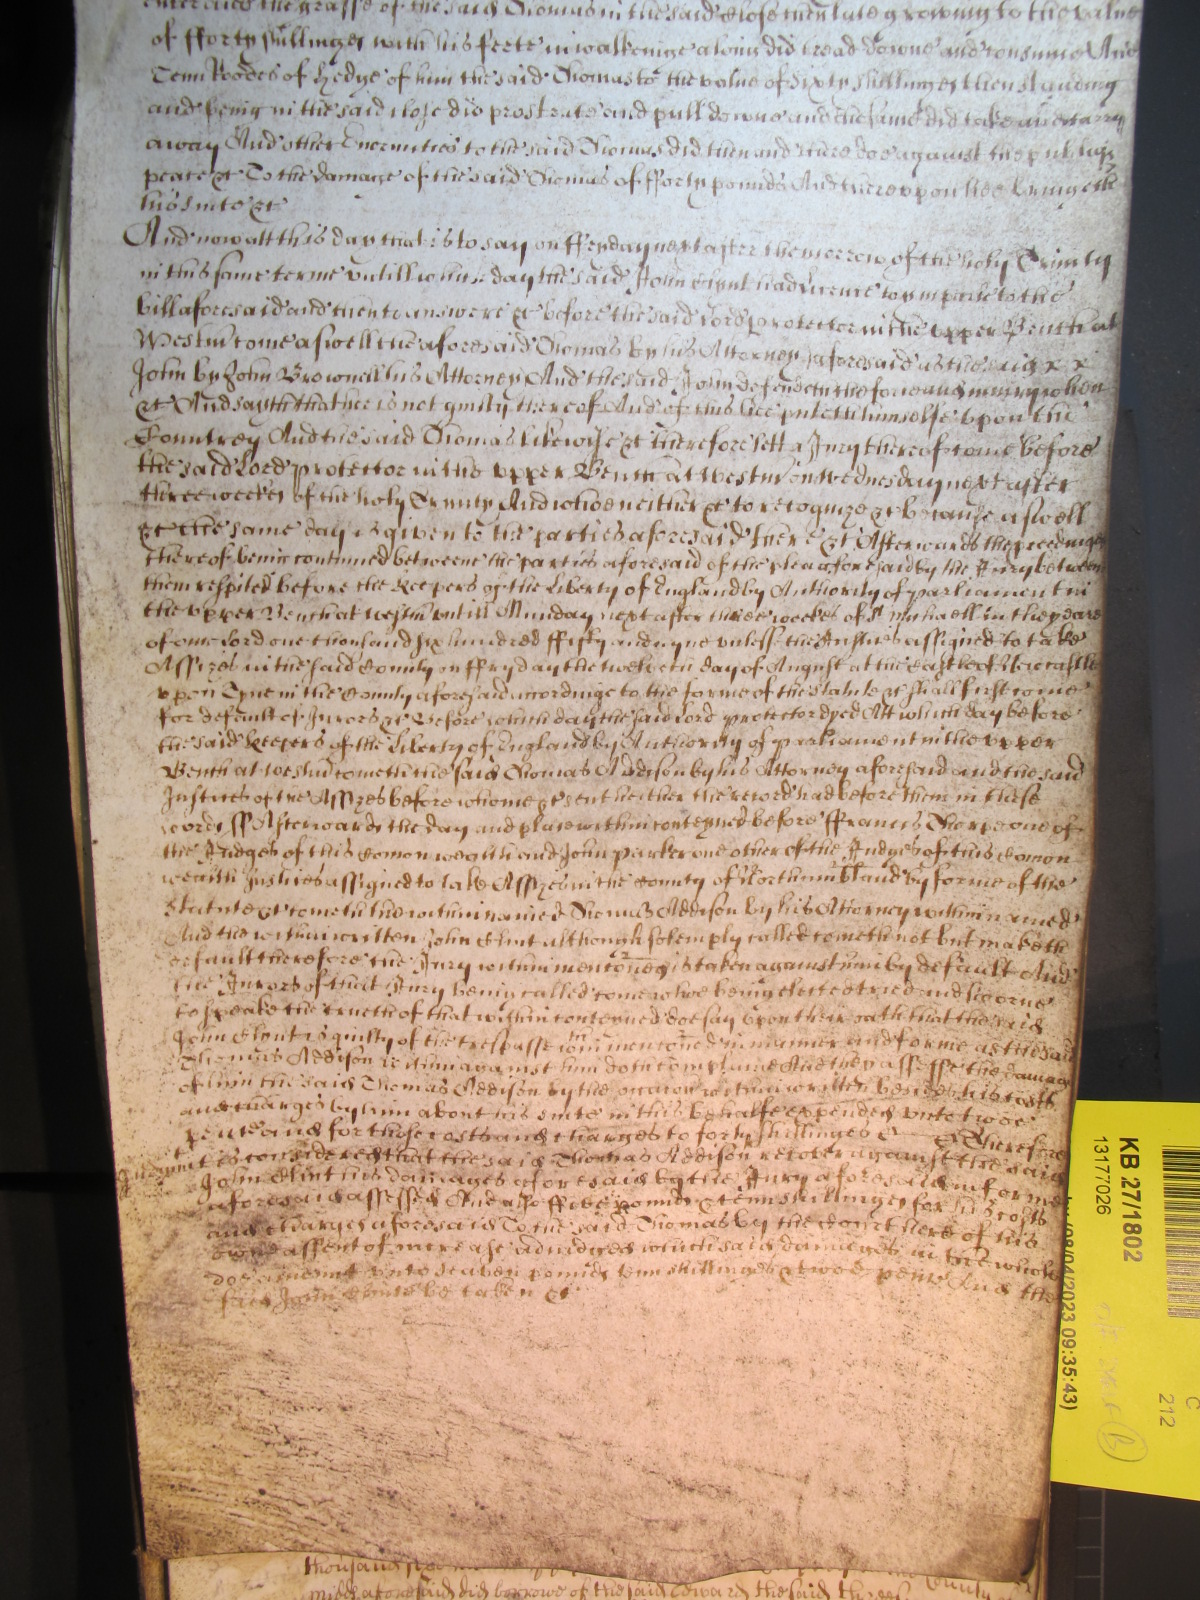 the grasse of the said Thomas in the said close then late growing to the value
of fforty shillinges with his feete in walkeinge alsoe did tread downe and consume And
Tenn Roodes of hedge of him the said Thomas to the value of Sixty shillinges then standing
and being in the said close did prostrate and pull downe and the same did take and carry
away And other Enormities to the said Thomas did then and there doe against the publique
peace &c To the damage of the said Thomas of fforty pounds And thereupon hee bringeth
his suite &c
And now att this day that is to say on ffryday next after the morrow of the holy Trinity
in this same terme untill which day the said John Clint had licence to imparle to the
bill aforesaid and then to answere &c before the said Lord Protector in the upper Bench at
Westm come aswell the aforesaid Thomas by his Attorney aforesaid as the said x x
John by John Brownell his Attorney And the said John defendeth the force and iniury when
&c And sayth that hee is not guilty thereof And of this hee putteth himselfe upon the
Countrey And the said Thomas likewise &c Therefore lett a Jury thereof come before
the said Lord protector in the upper Bench at Westm on Wednesday next after
three weekes of the holy Trinity And whoe neither &c to recognize &c because aswell
&c The same day is given to the parties aforesaid there &c Afterwards the proceedings
thereof being continued betweene the parties aforesaid of the plea aforesaid by the Jury between
them respited before the Keepers of the Liberty of England by Authority of parliament in
the upper Bench at Westm untill Munday next after three weekes of St Michaell in the yeare
of our Lord one thousand six hundred ffifty and nyne unlesse the Justices assigned to take
Assizes in the said County on ffryday the twelveth day of August at the Castle of Newcastle
upon Tyne in the County aforesaid accordinge to the forme of the statute &c shall first come
for default of Jurors &c Before which day the said Lord protector dyed Att which day before
the said Keepers of the Liberty of England by Authority of parliament in the upper
Bench at Westm cometh the said Thomas Addison by his Attorney aforesaid and the said
Justices of the Assizes before whome &c sent hether the record had before them in these
words ss Afterwards the day and place within conteyned before ffrancis Thorpe one of
the Judges of this Comon wealth and John Parker one other of the Judges of this Comon
wealth Justices assigned to take Assizes in the County of Northumbland by forme of the
Statute &c cometh the within named Thomas Addison by his Attorney within named
And the within written John Clint although solemply called cometh not but maketh
default therefore the Jury within mentoned is taken against him by default And
the Jurors of that Jury being called come whoe being elected tried and sworne
to speake the trueth of that within conteyned doe say upon their oath that the said
John Clint is guilty of the trespasse within mentoned in manner and forme as the said
Thomas Addison within against him doth complaine And they assesse the damages
of him the said Thomas Addison by the occacon within written besides his costs
and charges by him about his suite in this behalfe expended unto twoe
pence and for those costs and charges to forty shillinges &c Therefore
Judgmt it is considered that the said Thomas Addison recover against the said
John Clint his damages aforesaid by the Jury aforesaid in forme
aforesaid assessed And also ffive pounds & tenn shillinges for his costs
and charges aforesaid To the said Thomas by the Court here of his
owne assent of increase adiudged which said damages in the whole
doe amount unto seaven pounds tenn shillinges & twoe pence And the
said John Clint be taken &c
thousand
Midd aforesaid did borrowe of the said Edward the said
KB 27/1802
13177026
09/04/2023 09:35:43)
C
212